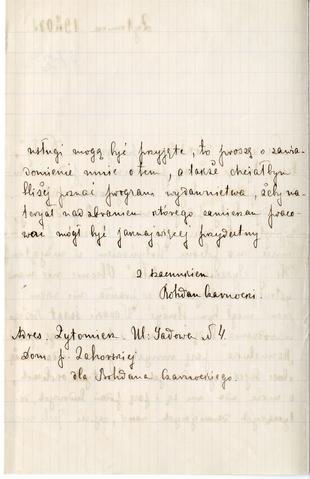 usługi mogą być przyjęte, to proszę o zawia-
domienie mnie o tem, a także chciałbym
bliżej poznać program wydawnictwa, żeby ma-
teryał nad zbraniem którego zamierzam praco-
wać mógł być jaknajwięcej przydatny
z szacunkiem
Bohdan Czarnocki.
Adres. Żytomierz. Ul: Sadowa № 4
Dom p. Zahorskiej
dla Bohdana Czarnockiego.